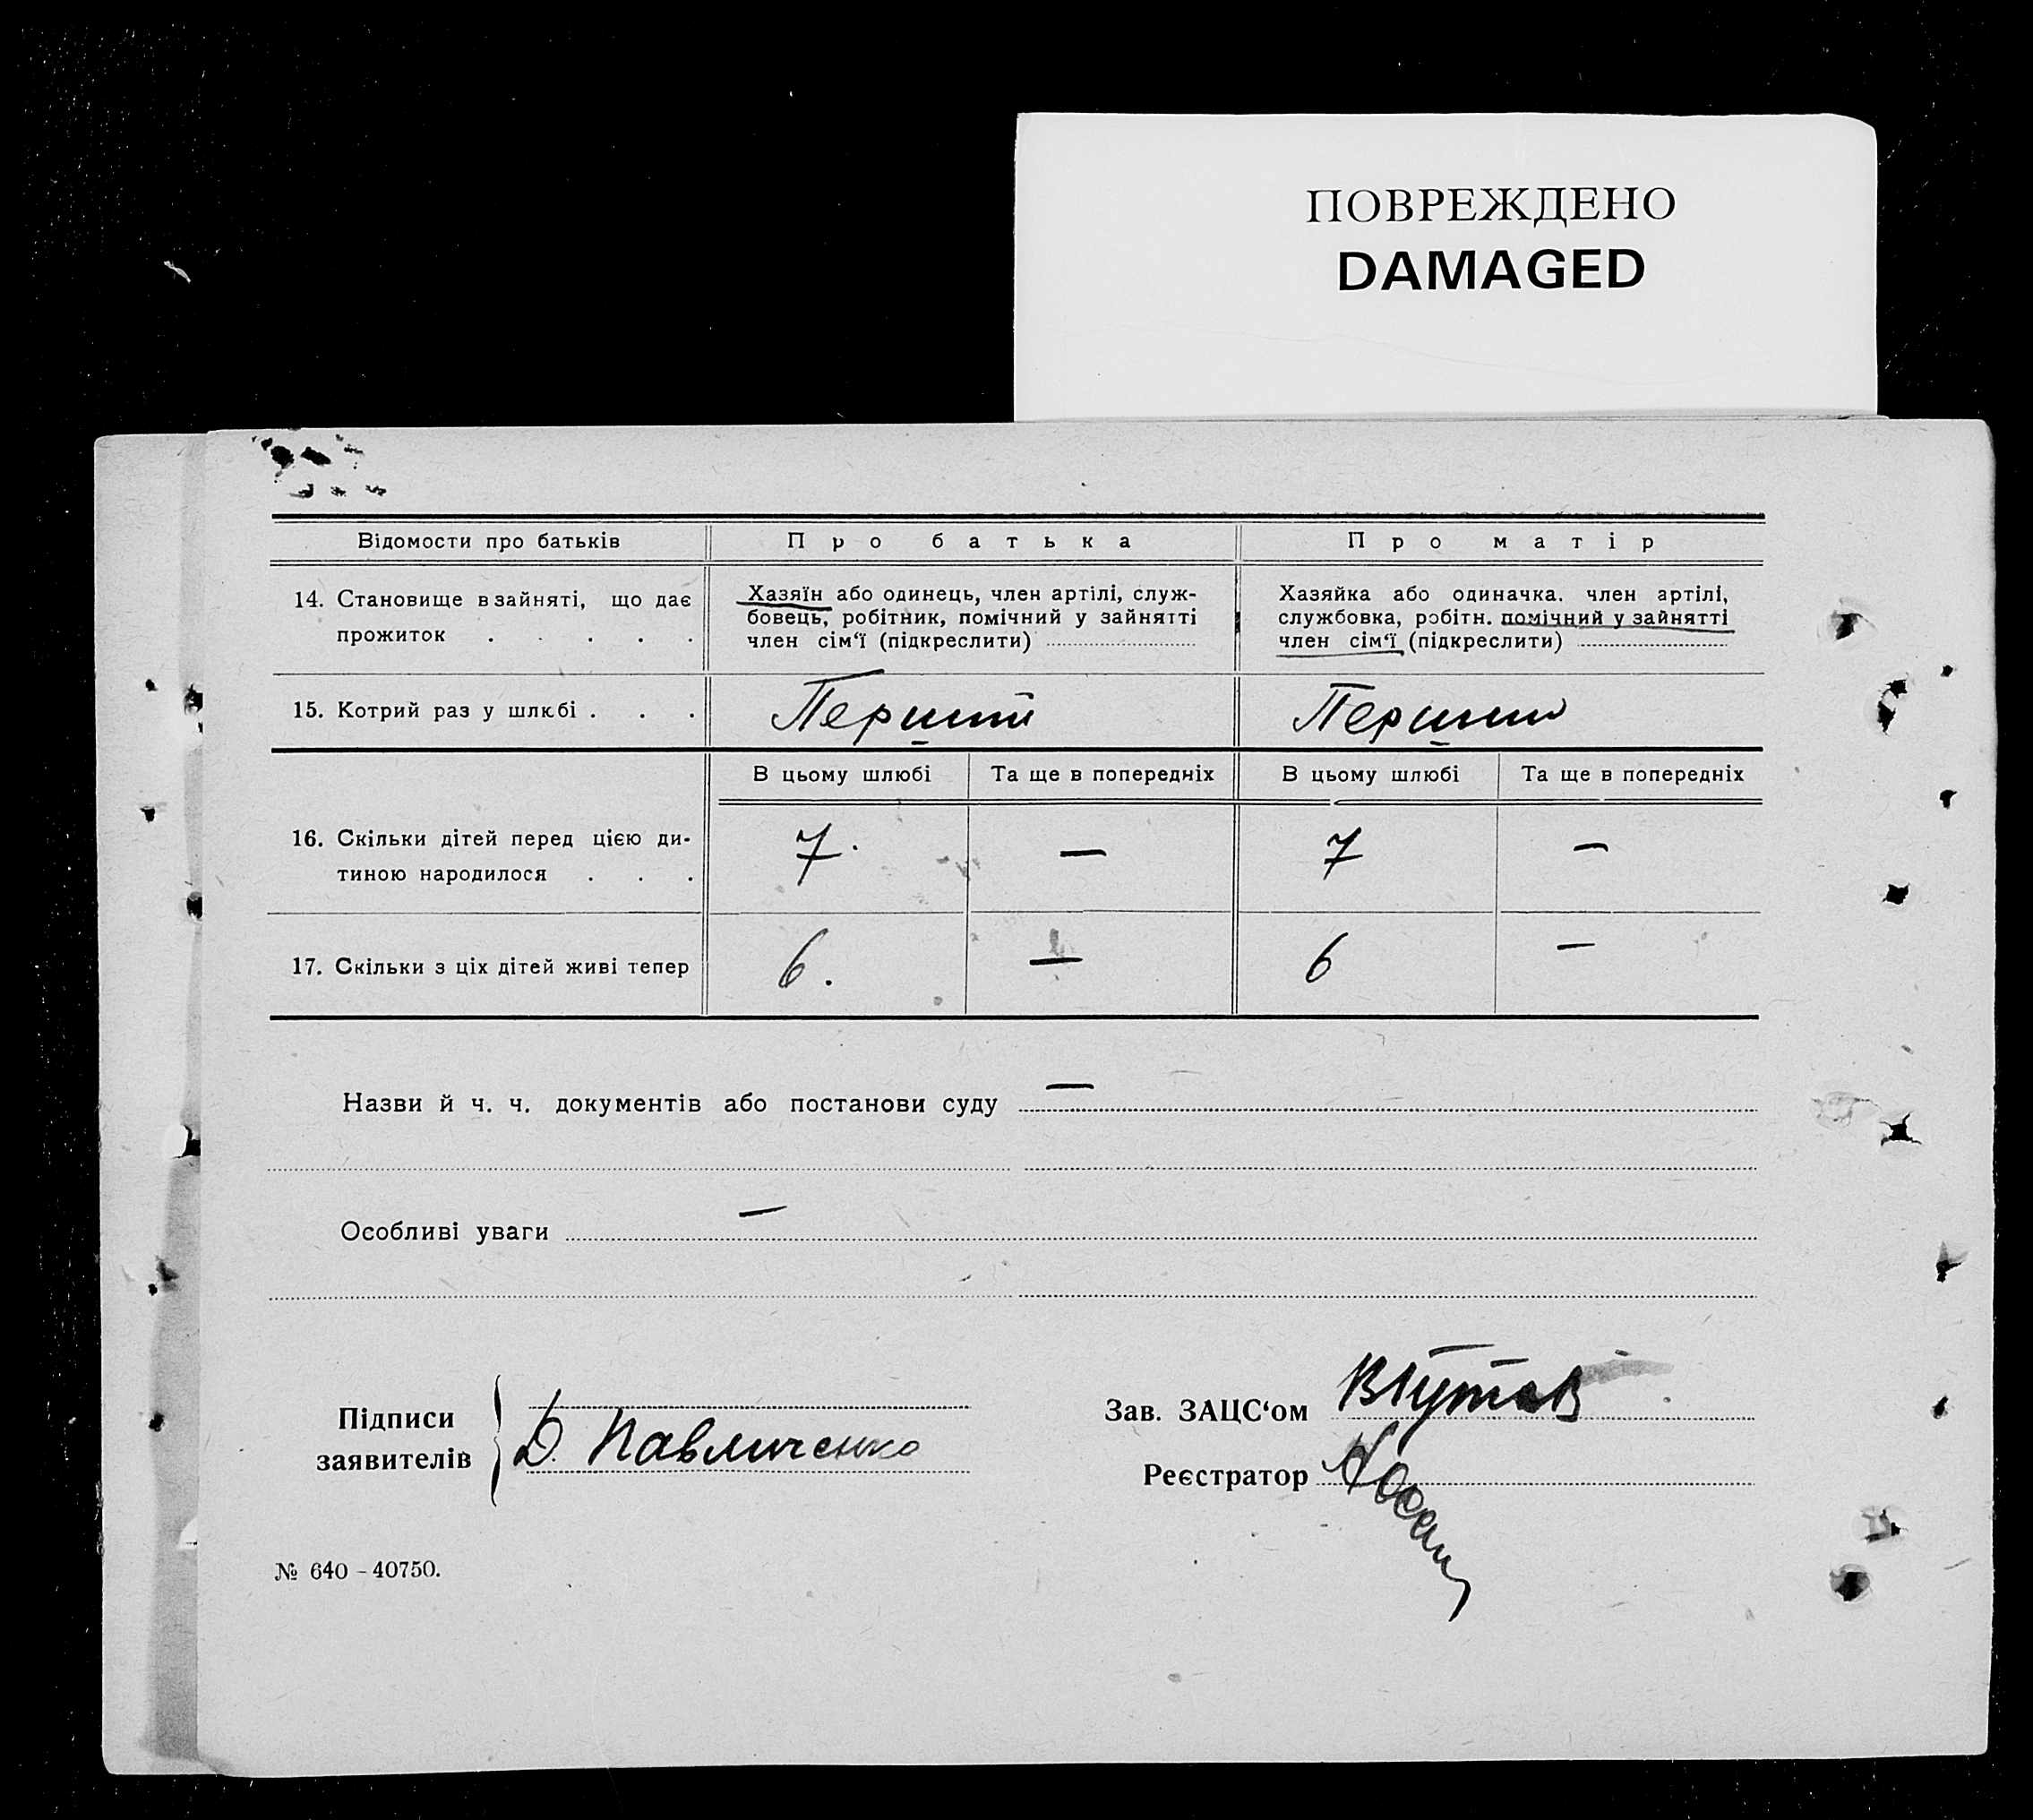 ПОВРЕЖДЕНО
DAMAGED
Відомости про батьків
Про батька
Про матір
14. Становище в зайняті, що дає
прожиток . . . . .
Хазяїн або одинець, член артілі, служ-
бовець, робітник, помічний у зайнятті
член сім‘ї (підкреслити)
Хазяйка або одиначка. член артілі,
службовка, робітн. помічний у зайнятті
член сім‘ї (підкреслити)
15. Котрий раз у шлюбі . . .
Перший
Перший
В цьому шлюбі
Та ще в попередніх
В цьому шлюбі
Та ще в попередніх
16. Скільки дітей перед цією ди-
тиною народилося . . .
7. — 7 —
17. Скільки з ціх дітей живі тепер
6. — 6 —
Назви й ч. ч. документів або постанови суду —
Особливі уваги —
Підписи
заявителів
Д. Павличенко
Зав. ЗАЦС‘ом
Реєстратор
№ 640 - 40750.